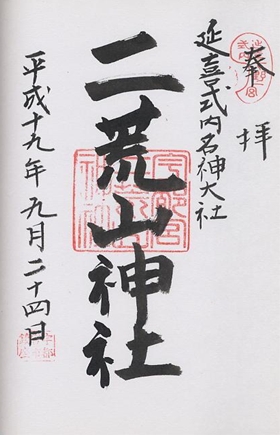 奉拝
延喜式内名神大社
二荒山神社
平成十九年九月二十四日